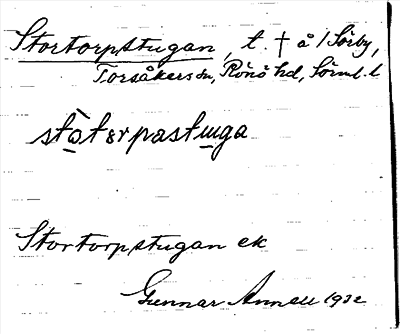 Stortorpstugan, t. † å 1 Sörby,
Torsåkers sn, Rönö hd, Sörml. l
stòtɷrpastuga
Stortorpstugan ek
Gunnar Annell 1932